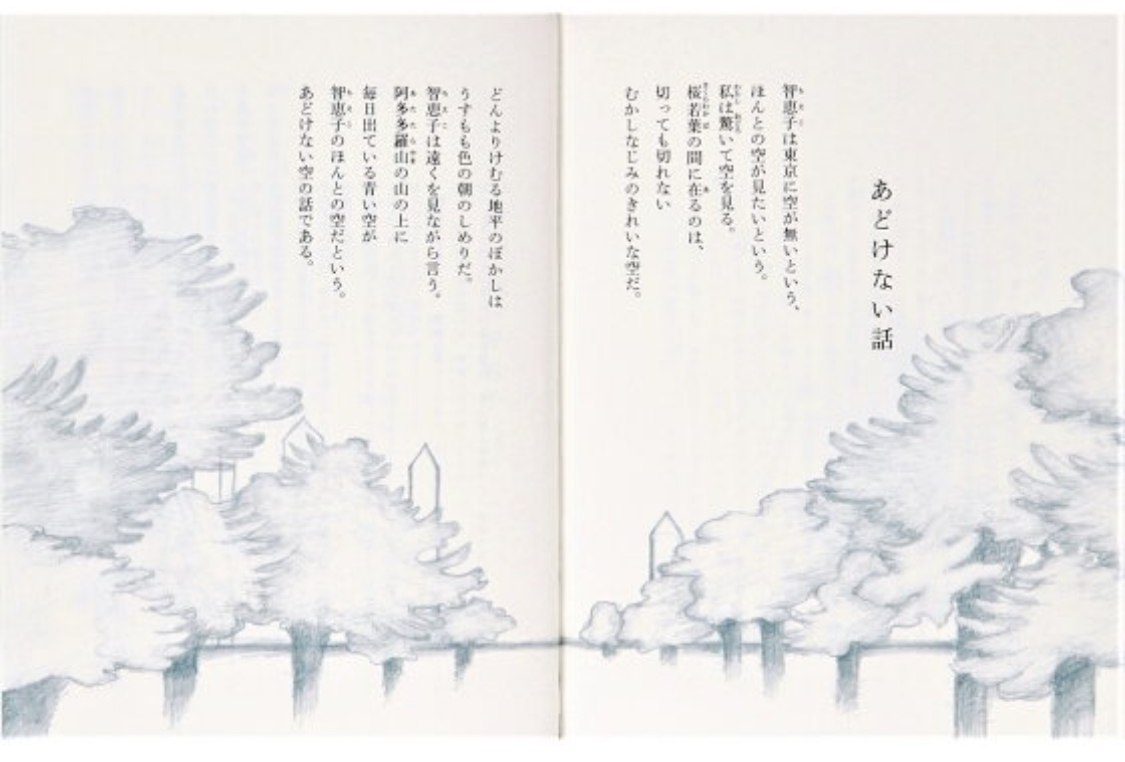 あどけない話
智恵子は東京に空が無いという、
ほんとの空が見たいという。
私は驚いて空を見る。
桜若葉の間に在るのは、
切っても切れない
むかしなじみのきれいな空だ。
どんよりけむる地平のぼかしは
うすもも色の朝のしめりだ。
智恵子は遠くを見ながら言う。
阿多多羅山の山の上に
毎日出ている青い空が
智恵子のほんとの空だという。
あどけない空の話である。